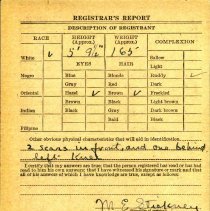 REGISTRAR'S REPORT
DESCRIPTION OF REGISTRANT
RACE HEIGHT (Approx.) WEIGHT (Approx.) COMPLEXION
5' 9½" 165
White ✓ EYES HAIR Sallow
Light
Negro Blue Blonde Ruddy ✓
Gray Red Dark
Oriental Hazel ✓ Brown ✓ Freckled
Brown Black Light brown
Indian Black Gray Dark brown
Bald Black
Filipino
Other obvious physical characteristics that will aid in identification
2 scars in front and one behind
left Knee
I certify that my answers are true; that the person registered has read or has had
read to him his own answers; that I have witnessed his signature or mark and that
all of his answers of which I have knowledge are true, except as follows: